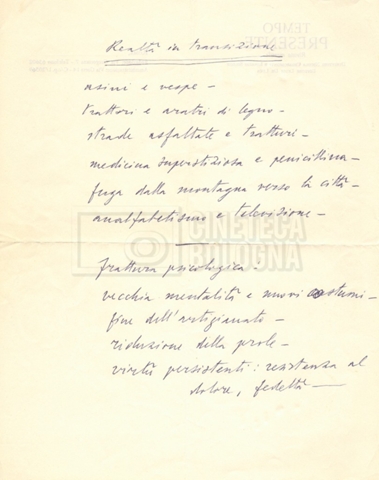 TEMPO
PRESENTE
Realtà in transizione
asini e vespe -
trattori e aratri di legno -
strade asfaltate e tratturi -
medicina superstiziosa e penicillina -
fuga dalla montagna verso la città -
analfabetismo e televisione -
CINETECA
BOLOGNA
frattura psicologica.
vecchia mentalità e nuovi costumi -
fine dell'artigianato -
riduzione della prole -
virtù persistenti: resistenza al
dolore, fedeltà